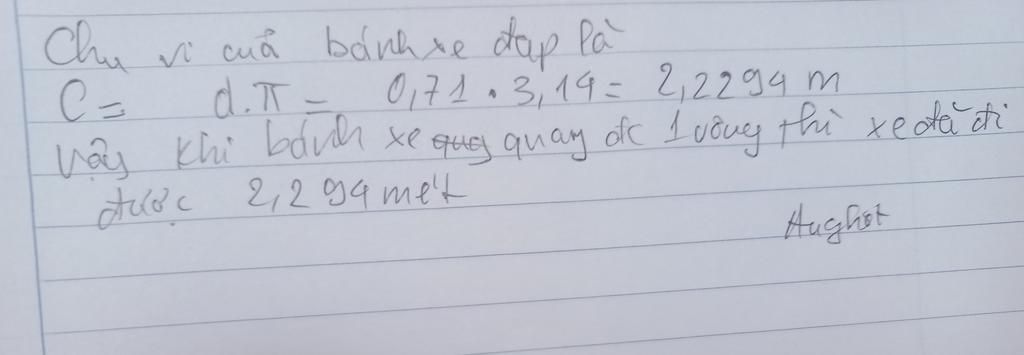 Chu vi cuả bánh xe đạp là
C = d.π = 0,71 . 3,14 = 2,2294 m
Vậy khi bánh xe quay đc 1 vòng thì xe đã đi
được 2,294 mét